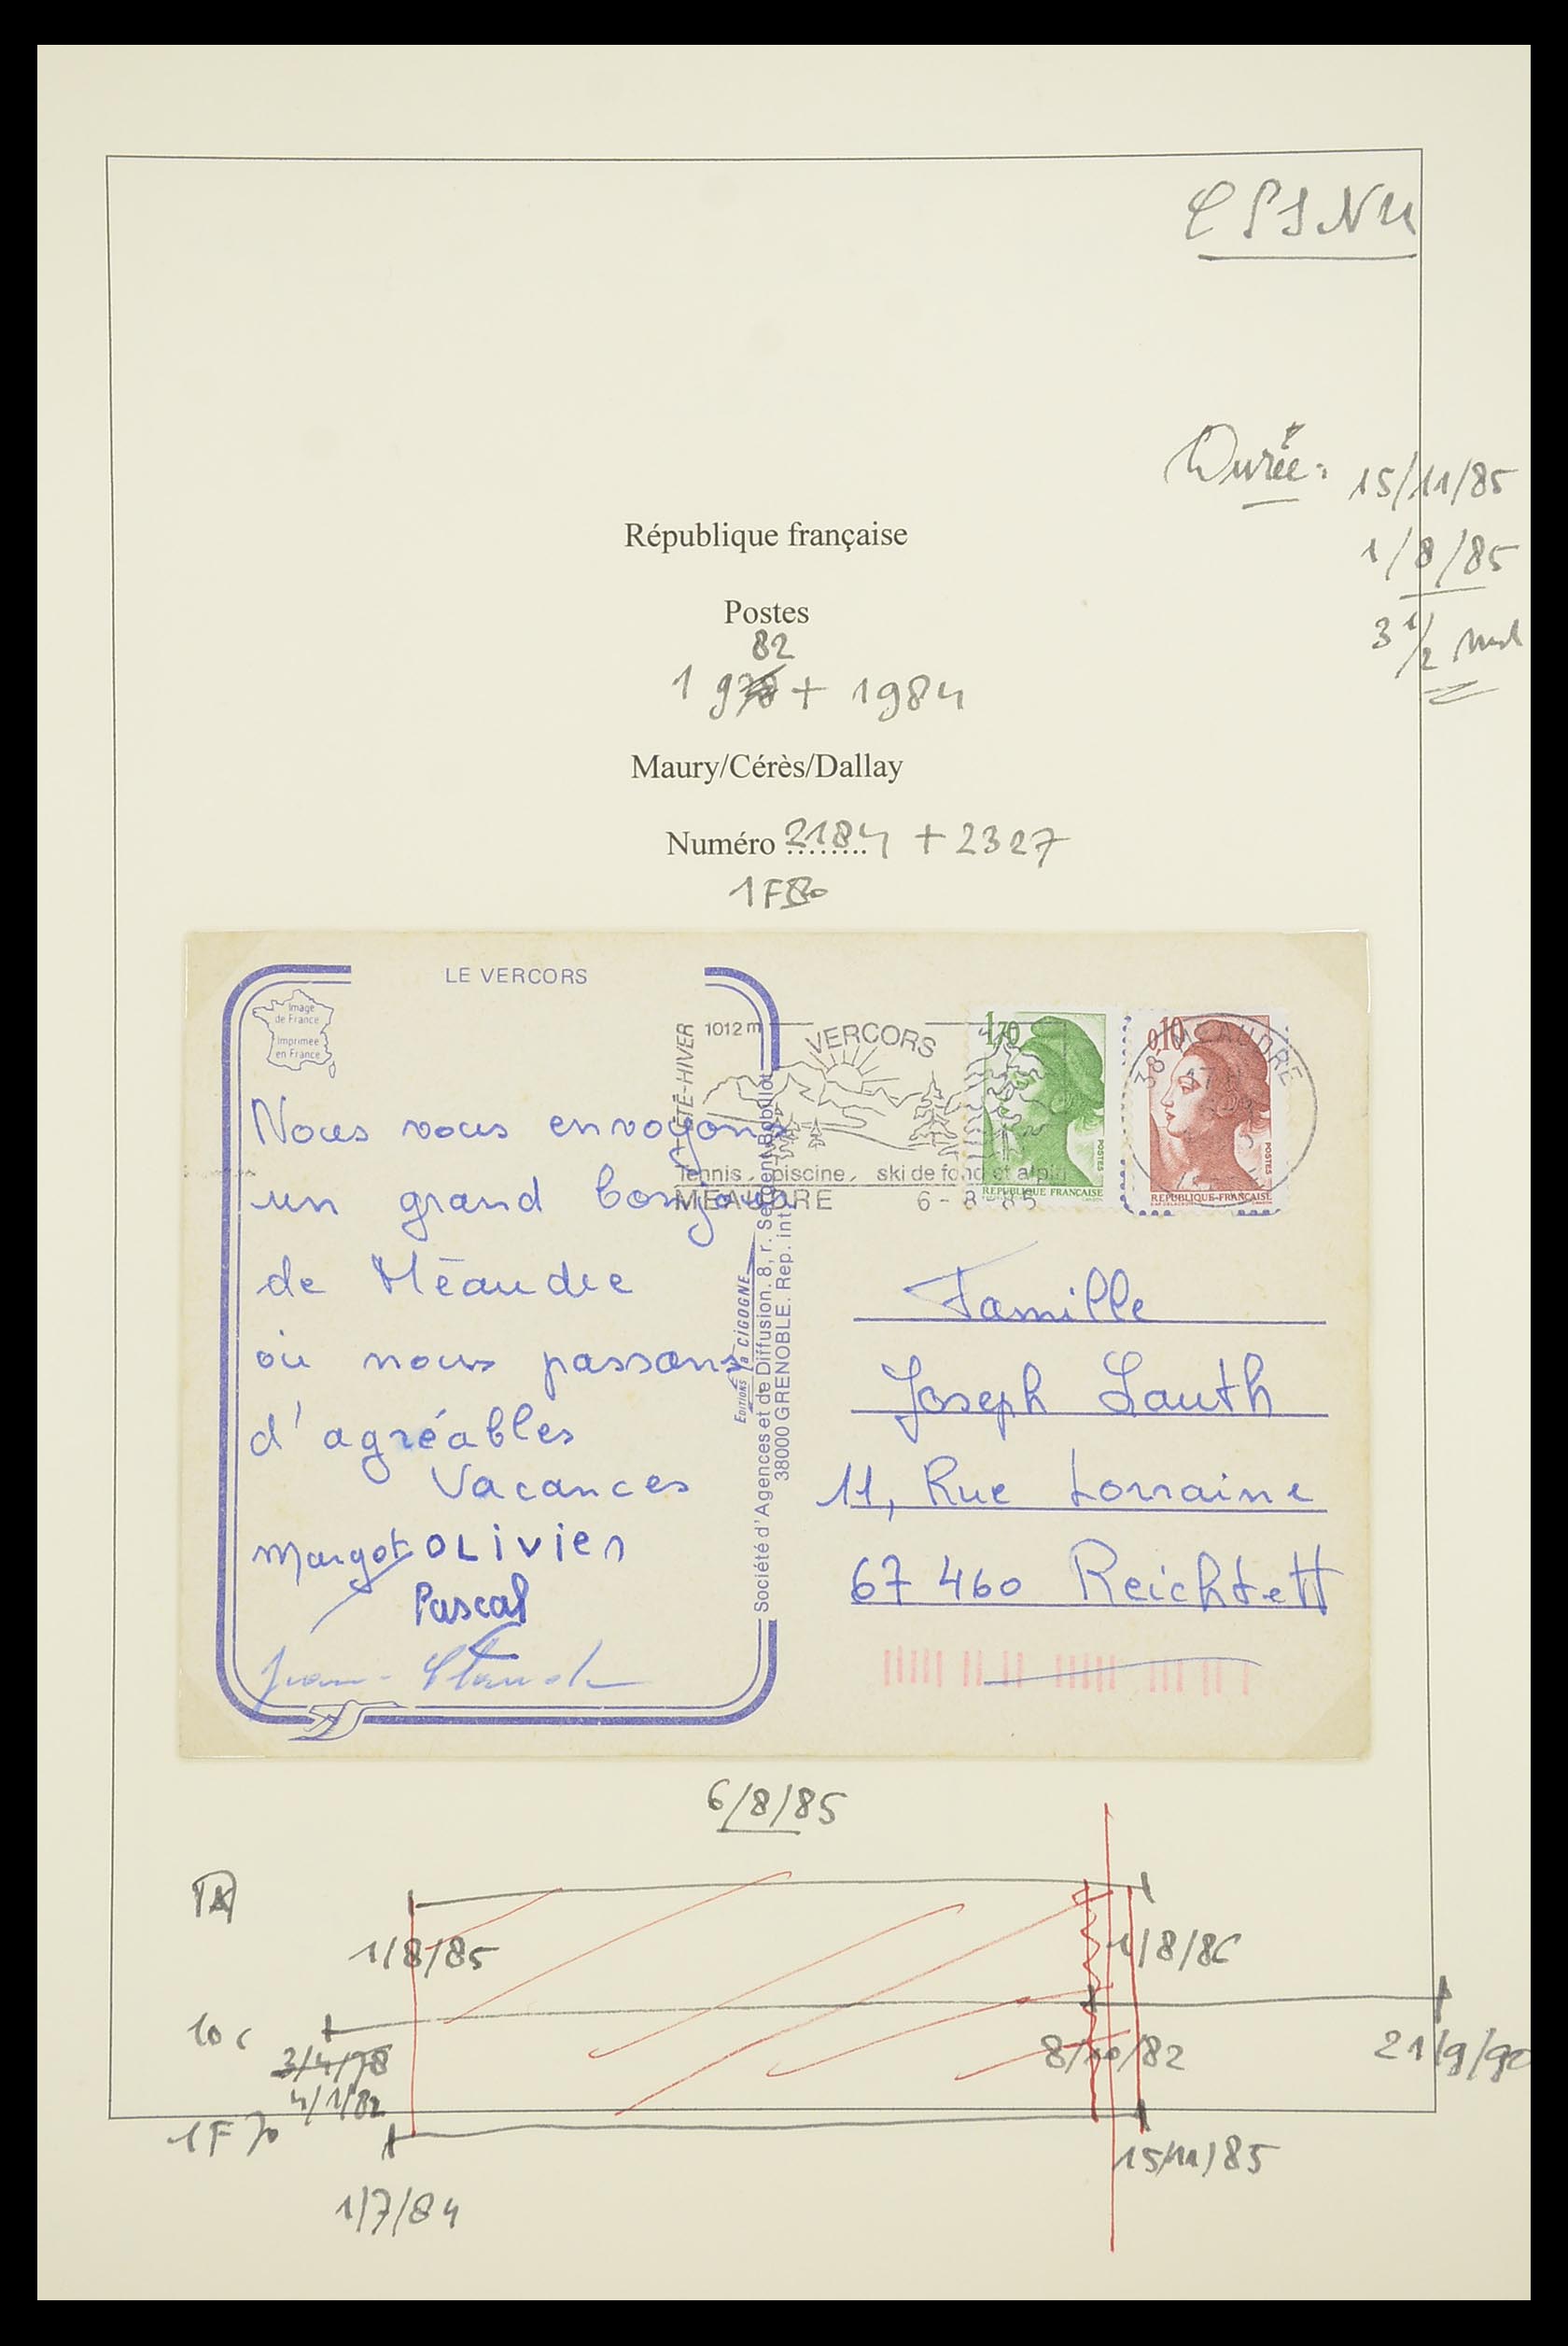 Durée:
15/11/85
1/8/85
3 1/2
République française
Postes
82
1978 + 1984
Maury/Cérès/Dallay
Numéro 2184 + 2327
1F80
LE VERCORS
Image
de France
Imprimée
en France
Nous vous envoyons
un grand bonjour
de Méaudre
où nous passons
d'agréables
Vacances
Margot OLivier
Pascal
Jean-Claude
ÉTÉ-HIVER
1012 m
VERCORS
Tennis, piscine, ski de fond et alpin
MEAUDRE 6-8-85
1,70
POSTES
REPUBLIQUE FRANCAISE
0,10
POSTES
REPUBLIQUE FRANÇAISE
38 MEAUDRE
EDITIONS La CIGOGNE
Société d'Agences et de Diffusion. 8, r. Sergent Bobillot
38000 GRENOBLE. Rep. int.
Famille
Joseph Lauth
11, Rue Lorraine
67 460 Reichstett
6/8/85
1/8/85
1/8/86
10 c
3/4/78
4/1/82
8/10/82
21/9/90
1F70
15/11/85
1/7/84